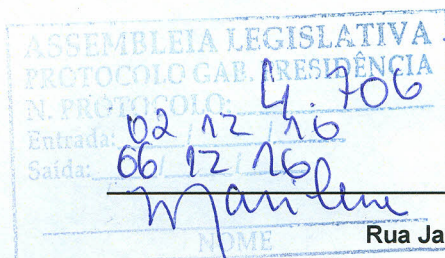 ASSEMBLEIA LEGISLATIVA
PROTOCOLO GAB. PRESIDÊNCIA
N. PROTOCOLO: 4.706
Entrada: 02/12/16
Saída: 06/12/16
Marilene
NOME
Rua Ja